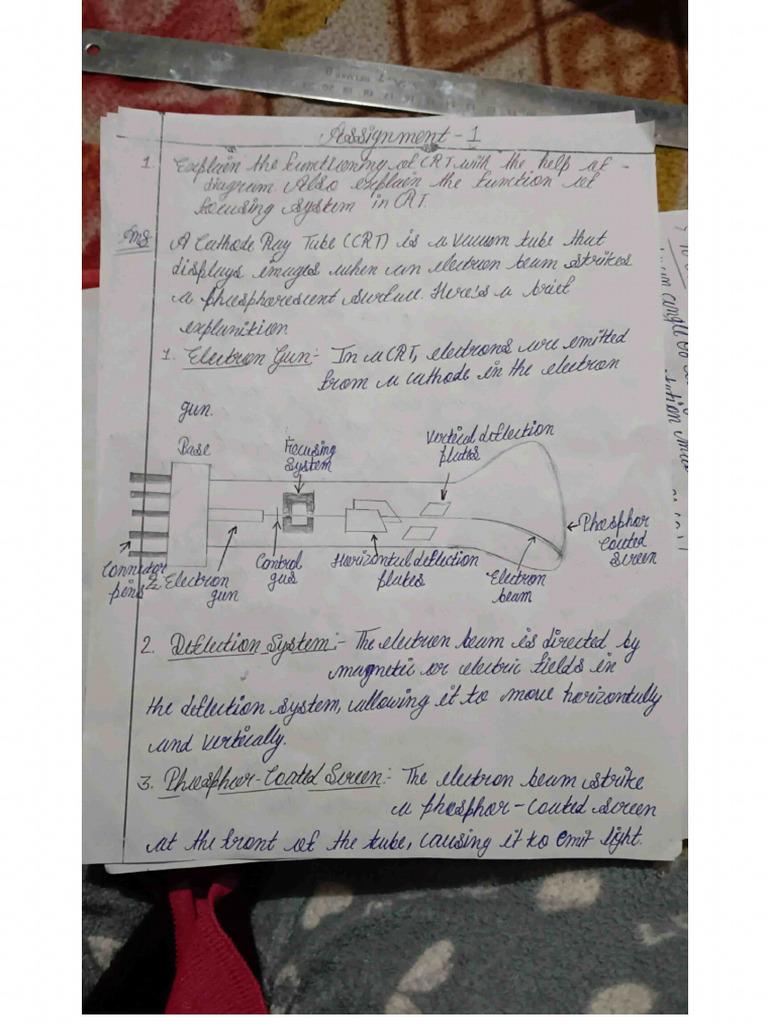 Assignment - 1
1. Explain the functioning of CRT with the help of -
diagram. Also explain the function of
focusing system in CRT.
Ans
A Cathode Ray Tube (CRT) is a vacuum tube that
displays images when an electron beam strikes
a phosphorescent surface. Here's a brief
explanition
1. Electron Gun:- In a CRT, electrons are emitted
from a cathode in the electron
gun.
Base
Focusing
System
Vertical deflection
plates
Phosphor
Coated
screen
Connector
pins
Electron
gun
Control
Horizontal deflection
plates
Electron
beam
2. Deflection System:- The electron beam is directed by
magnetic or electric fields in
the deflection system, allowing it to move horizontally
and vertically.
3. Phosphor-Coated Screen:- The electron beam strike
a phosphor-coated screen
at the front of the tube, causing it to emit light.